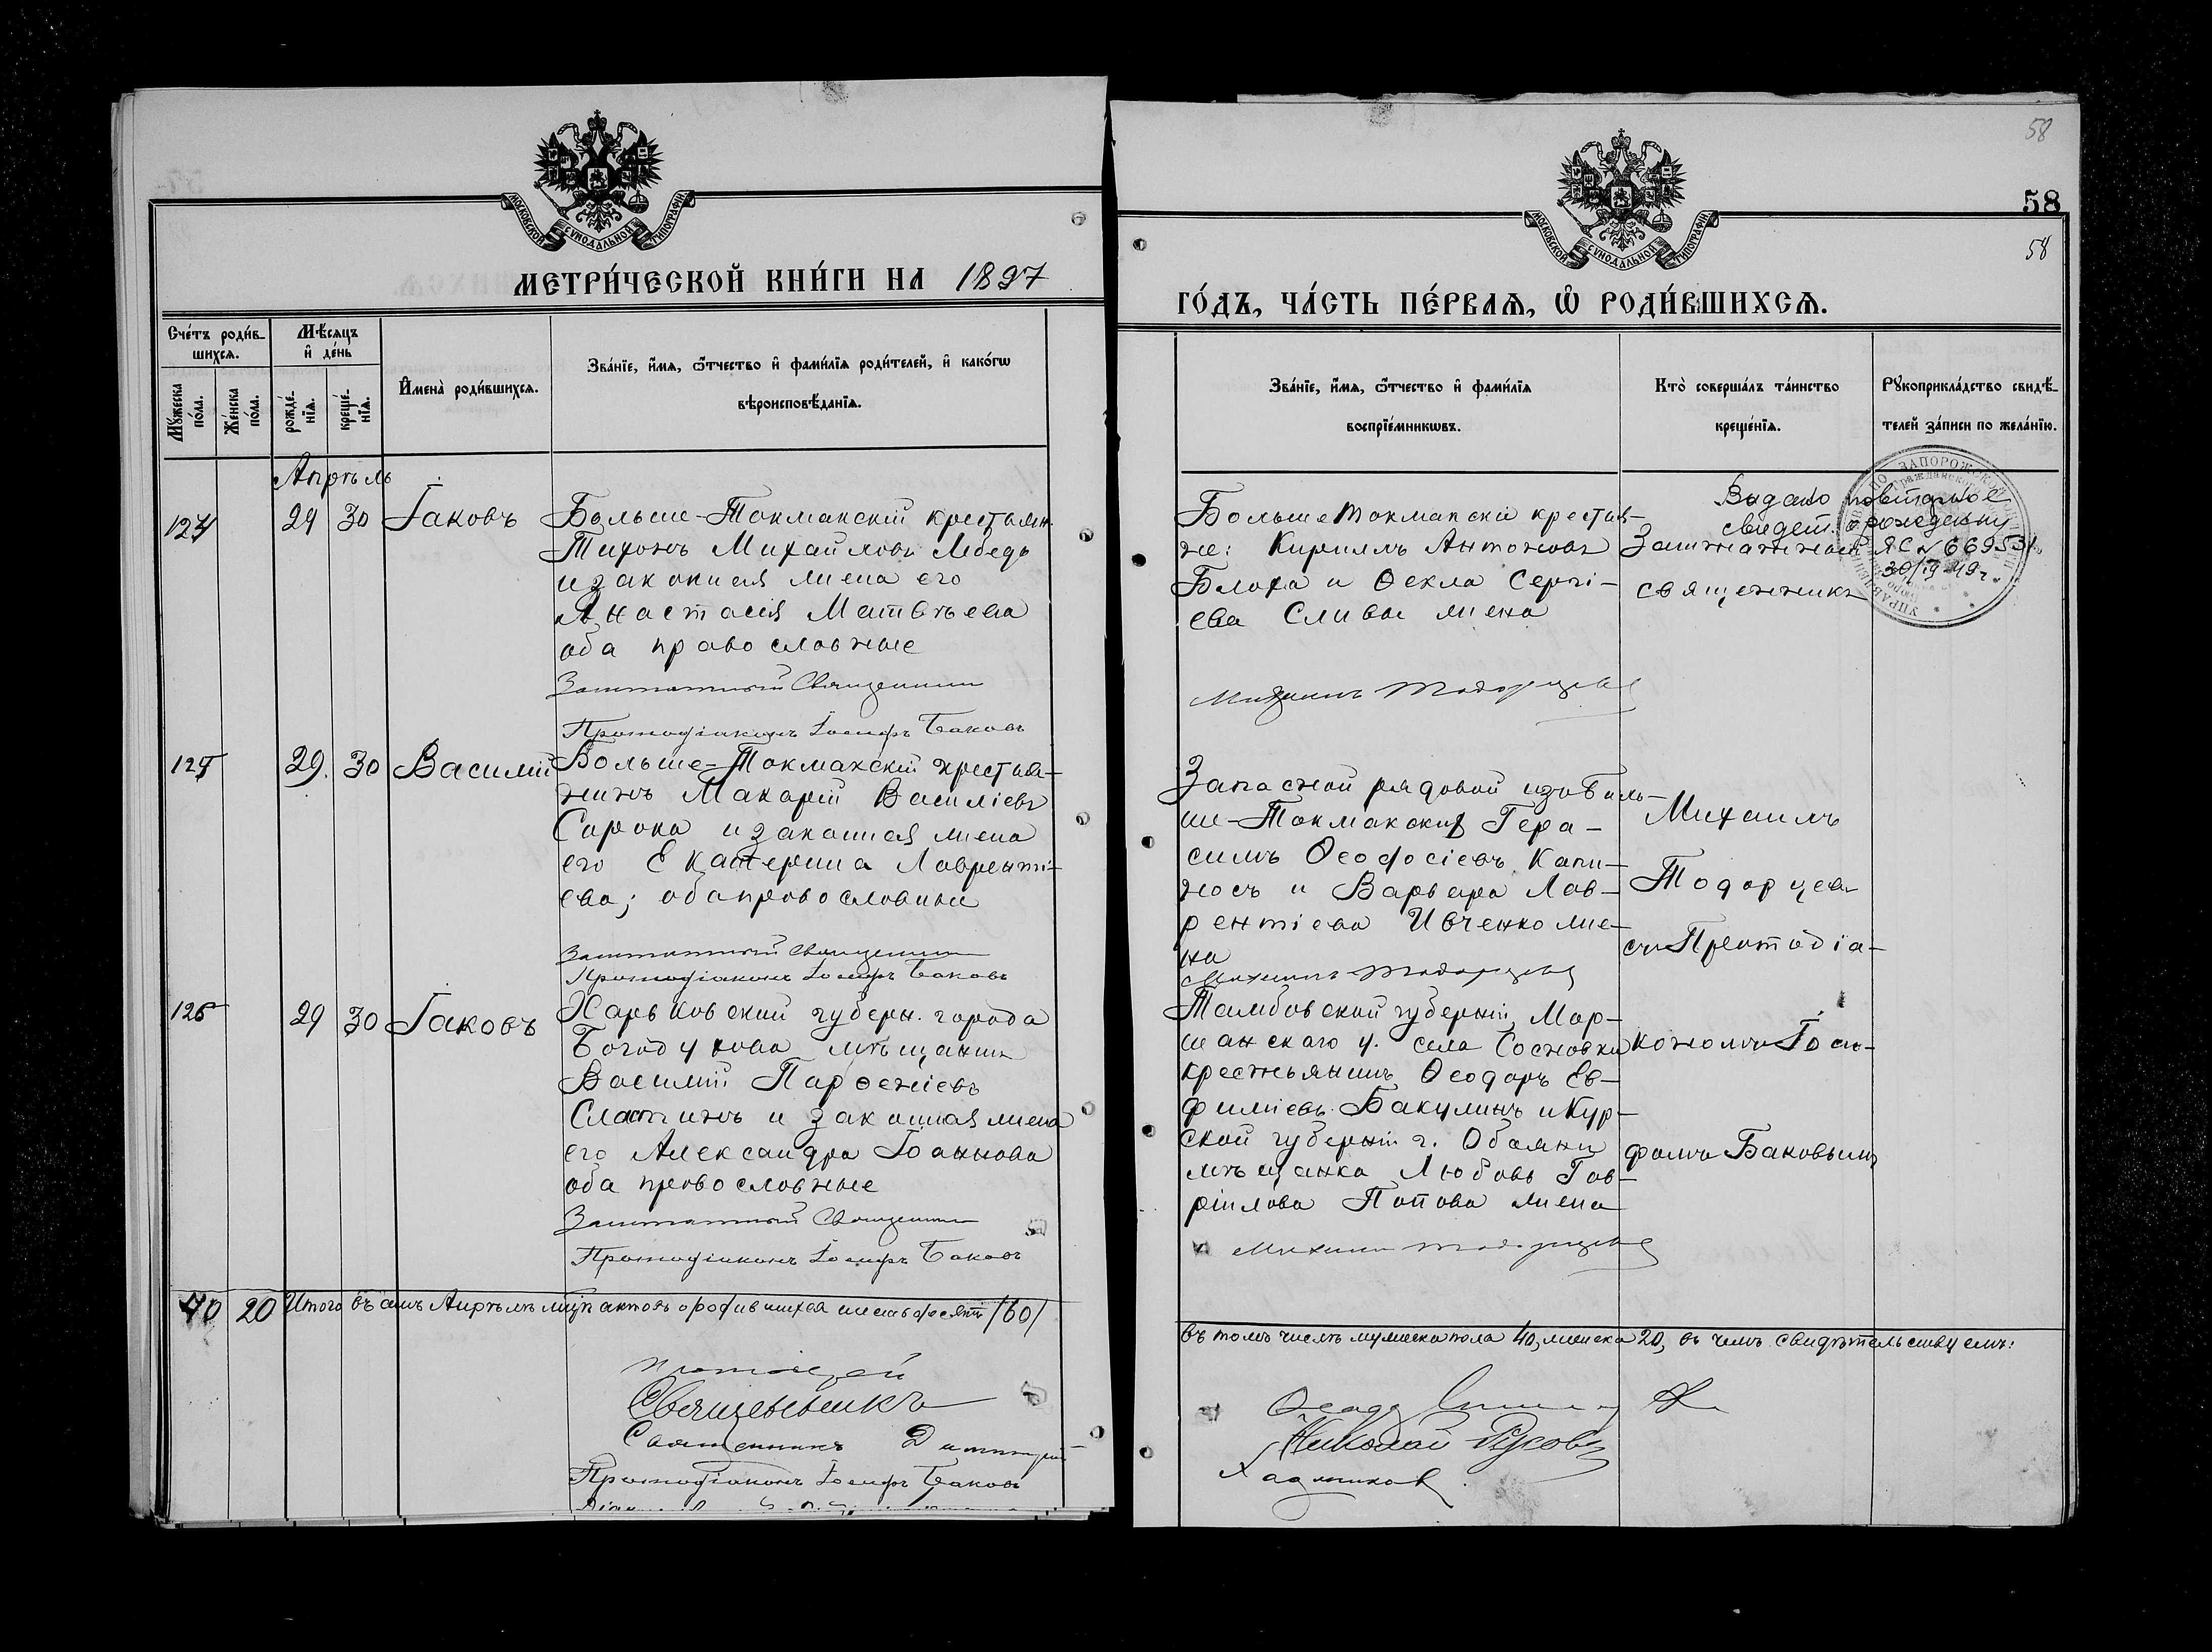 58
58
58
МОСКОВСКОЙ СѴНОДАЛЬНОЙ ТИПОГРАФІИ
МЕТРИ́ЧЕСКОЙ КНИ́ГИ НА 1897
Сче́тъ роди́в-
шихсѧ.
Мѣ́сѧцъ
и҆ де́нь
Мꙋ́жеска
по́ла.
Же́нска
по́ла.
рожде́-
нїѧ.
креще́-
нїѧ.
И҆мена̀ роди́вшихсѧ.
Зва́нїе, и҆́мѧ, ѻ҆́тчество и҆ фами́лїѧ роди́телей, и҆ како́гѡ
вѣроисповѣ́данїѧ.
Апрѣль
124 29 30 Іаковъ
Больше-Токмакскій крестьян.
Тихонъ Михайловъ Лебедь
и законная жена его
Анастасія Матвѣева
оба православные
Заштатный Священник
Протодіаконъ Іосифъ Баковъ
29. 30 Василій
Больше-Токмакскій крестья-
нинъ Макарій Василіевъ
Сорока и законная жена
его Екатерина Лаврентi-
ева; оба православные
Заштатный Священник
Протодіаконъ Іосифъ Баковъ
126 29 30 Іаковъ
Харьковской губерн. города
Богодухова мѣщанинъ
Василій Парѳеніевъ
Сластинъ и законная жена
его Александра Іоаннова
оба православные
Заштатный Священник
Протодіаконъ Іосифъ Баковъ
40 20 Итого въ Апрѣлѣ мцѣ актовъ о родившихся шестьдесятъ /60/
Священникъ
Священникъ Димитрій
Протодіаконъ Іосифъ Баковъ
МОСКОВСКОЙ СѴНОДАЛЬНОЙ ТИПОГРАФІИ
ГО́ДЪ, ЧА́СТЬ ПЕ́РВАѦ, Ѡ҆ РОДИ́ВШИХСѦ.
Зва́нїе, и҆́мѧ, ѻ҆́тчество и҆ фами́лїѧ
воспрїе́мникѡвъ.
Кто̀ соверша́лъ та́инство
креще́нїѧ.
Рꙋкоприкла́дство свидѣ́-
телей за́писи по жела́нїю.
Выдано повторное
свидет. о рождении
ЯС № 669531
Больше Токмакскіе крестья-
не: Кириллъ Антоновъ
Блоха и Ѳекла Сергі-
ева Сливы жена
Михаилъ Тодорцевъ
Заштатный
священникъ
Запасной рядовой изъ Боль-
ше-Токмакскихъ Гера-
симъ Ѳеодосіевъ Капи-
носъ и Варвара Лав-
рентіева Ивченко же-
на
Михаилъ Тодорцевъ
Михаилъ
Тодорцевъ
съ Протодіа-
Тамбовской губерніи, Мор-
шанскаго у. села Сосновки
крестьянинъ Ѳеодоръ Ев-
фиміевъ Бакулинъ и Кур-
ской губерніи г. Обояни
мѣщанка Любовь Гав-
ріилова Попова жена
Михаилъ Тодорцевъ
кономъ Іоси-
фомъ Баковымъ
въ томъ числѣ мужеска пола 40, женска 20, въ чемъ свидѣтельствуемъ:
Николай Русовъ